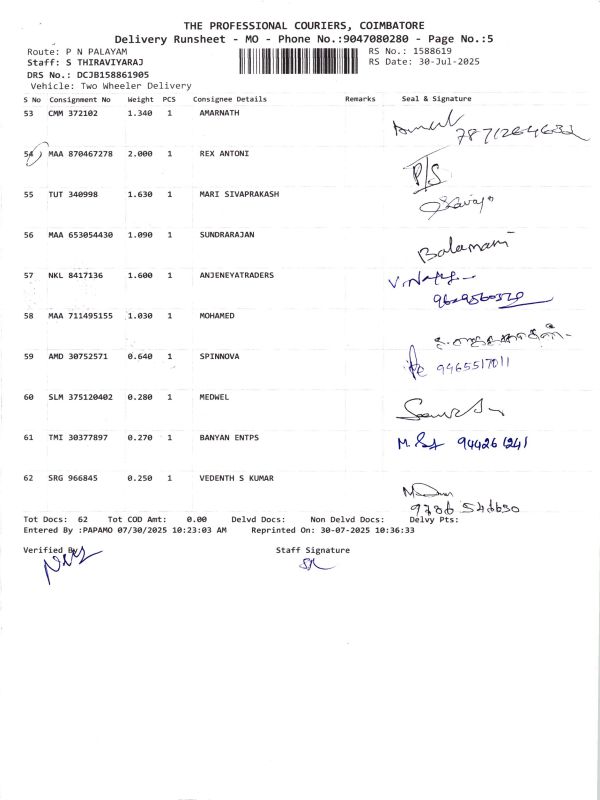 THE PROFESSIONAL COURIERS, COIMBATORE
Delivery Runsheet - MO - Phone No.:9047080280 - Page No.:5
Route: P N PALAYAM RS No.: 1588619
Staff: S THIRAVIYARAJ RS Date: 30-Jul-2025
DRS No.: DCJB158861905
Vehicle: Two Wheeler Delivery
S No Consignment No Weight PCS Consignee Details Remarks Seal & Signature
53 CMM 372102 1.340 1 AMARNATH
54 MAA 870467278 2.000 1 REX ANTONI
P/S
55 TUT 340998 1.630 1 MARI SIVAPRAKASH
56 MAA 653054430 1.090 1 SUNDRARAJAN
Balamani
57 NKL 8417136 1.600 1 ANJENEYATRADERS
58 MAA 711495155 1.030 1 MOHAMED
59 AMD 30752571 0.640 1 SPINNOVA
9465517011
60 SLM 375120402 0.280 1 MEDWEL
61 TMI 30377897 0.270 1 BANYAN ENTPS
62 SRG 966845 0.250 1 VEDENTH S KUMAR
Tot Docs: 62 Tot COD Amt: 0.00 Delvd Docs: Non Delvd Docs: Delvy Pts:
Entered By :PAPAMO 07/30/2025 10:23:03 AM Reprinted On: 30-07-2025 10:36:33
Verified By Staff Signature